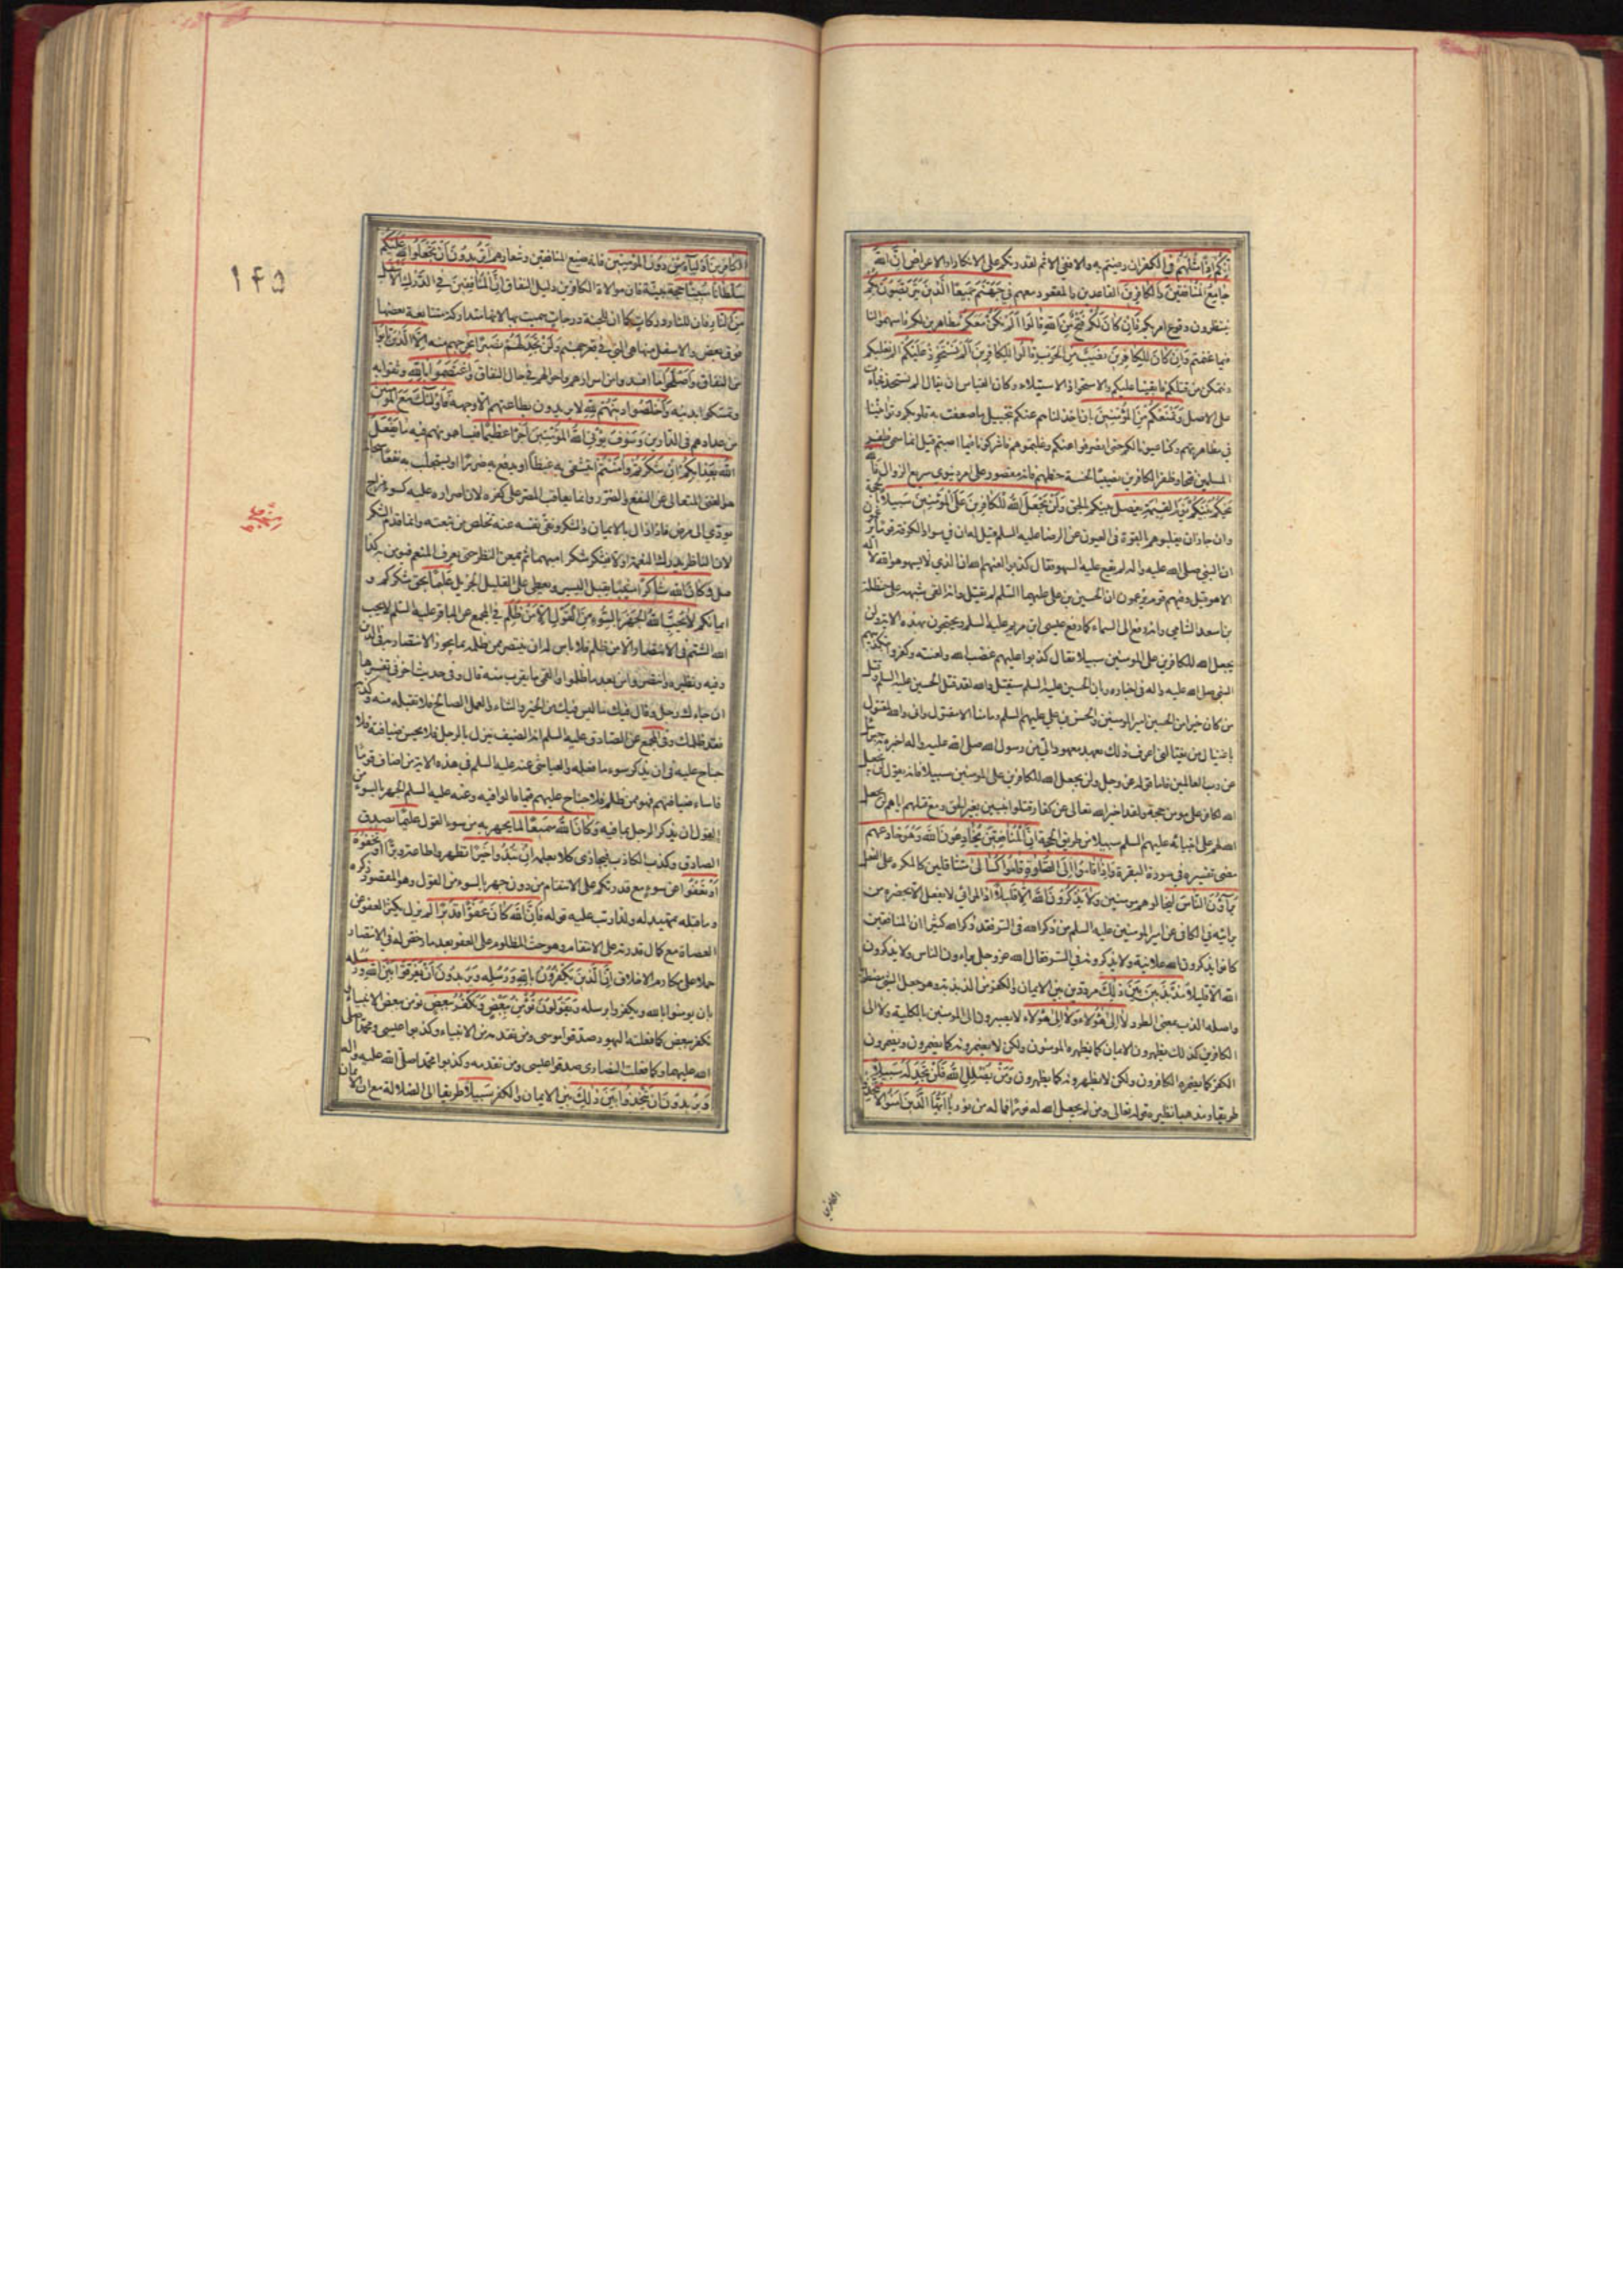 إنكم إذا مثلهم في الكفر ان رضيتم به والا ففي الاثم لقدرتكم على الانكار او الاعراض ان الله
جامع المنافقين والكافرين القاعدين والمقعود معهم في جهنم جميعا الذين يتربصون بكم
ينتظرون وقوع امر بكم فان كان لكم فتح من الله قالوا الم نكن معكم مظاهرين لكم فاسهموا لنا
فيما غنمتم وان كان للكافرين نصيب من الحرب قالوا للكافرين الم نستحوذ عليكم الم نغلبكم
ونتمكن من قتلكم فابقينا عليكم والاستحواذ الاستيلاء وكان القياس ان يقال الم نستحذ فجاءت
على الاصل ونمنعكم من المؤمنين بان اخذلناهم عنكم بتخييل ما ضعفت به قلوبهم وتوانينا
في مظاهرتهم وكنا عيونا لكم حتى انصرفوا عنكم وغلبتموهم فاشركونا فيما اصبتم قيل انما سمى ظفر
المسلمين فتحا وظفر الكافرين نصيبا لخسة حظهم فانه مقصور على امر دنيوي سريع الزوال فالله
يحكم بينكم يوم القيمة يفصل بينكم بالحق ولن يجعل الله للكافرين على المؤمنين سبيلا بالحجة
وان جاز ان يغلبوهم بالقوة في العيون عن الرضا عليه السلم قيل له ان في سواد الكوفة قوما يزعمون
ان النبي صلى الله عليه واله لم يقع عليه السهو فقال كذبوا لعنهم الله ان الذي لا يسهو هو الله لا اله
الا هو قيل وفيهم قوم يزعمون ان الحسين بن علي عليهما السلم لم يقتل وانه القى شبهه على حنظلة
بن اسعد الشامي وانه رفع الى السماء كما رفع عيسى ابن مريم عليه السلم ويحتجون بهذه الاية ولن
يجعل الله للكافرين على المؤمنين سبيلا فقال كذبوا عليهم غضب الله ولعنته وكفروا بتكذيبهم
النبي صلى الله عليه واله في اخباره بان الحسين عليه السلم سيقتل والله لقد قتل الحسين عليه السلم وقتل
من كان خيرا من الحسين امير المؤمنين والحسن بن علي عليهم السلم وما منا الا مقتول واني والله لمقتول
باغتيال من يغتالني اعرف ذلك بعهد معهود الي من رسول الله صلى الله عليه واله اخبره به جبرئيل
عن رب العالمين فاما قوله عز وجل ولن يجعل الله للكافرين على المؤمنين سبيلا فانه يقول لن يجعل
الله لكافر على مؤمن حجة ولقد اخبر الله تعالى عن كفار قتلوا نبيين بغير الحق ومع قتلهم اياهم لن يجعل
الله لهم على انبيائه عليهم السلم سبيلا من طريق الحجة ان المنافقين يخادعون الله وهو خادعهم
مضى تفسيره في سورة البقرة واذا قاموا الى الصلوة قاموا كسالى متثاقلين كالمكره على الفعل
يراؤن الناس ليخالوهم مؤمنين ولا يذكرون الله الا قليلا اذ المرائي لا يفعل الا بحضرة من
يرائيه في الكافي عن امير المؤمنين عليه السلم من ذكر الله في السر فقد ذكر الله كثيرا ان المنافقين
كانوا يذكرون الله علانية ولا يذكرونه في السر فقال الله عز وجل يراءون الناس ولا يذكرون
الله الا قليلا مذبذبين بين ذلك مرددين بين الايمان والكفر من الذبذبة وهو جعل الشئ مضطربا
واصله الذب بمعنى الطرد لا الى هؤلاء ولا الى هؤلاء لا يصيرون الى المؤمنين بالكلية ولا الى
الكافرين كذلك يظهرون الايمان كما يظهره المؤمنون ولكن لا يضمرونه كما يضمرون ويضمرون
الكفر كما يضمره الكافرون ولكن لا يظهرونه كما يظهرون ومن يضلل الله فلن تجد له سبيلا
طريقا ومذهبا نظيره قوله تعالى ومن لم يجعل الله له نورا فما له من نور يا ايها الذين امنوا لا تتخذوا
الكافرين
الكافرين اولياء من دون المؤمنين فانه صنيع المنافقين وشعارهم اتريدون ان تجعلوا لله عليكم
سلطانا مبينا حجة بينة فان موالاة الكافرين دليل النفاق ان المنافقين في الدرك الاسفل
من النار فان للنار دركات كما ان للجنة درجات سميت بها لانها متداركة متتابعة بعضها
فوق بعض والاسفل منها هي التي في قعر جهنم ولن تجد لهم نصيرا يخرجهم منه الا الذين تابوا
من النفاق واصلحوا ما افسدوا من اسرارهم واحوالهم في حال النفاق واعتصموا بالله وثقوا به
وتمسكوا بدينه واخلصوا دينهم لله لا يريدون بطاعتهم الا وجهه فاولئك مع المؤمنين
من عدادهم في الدارين وسوف يؤتي الله المؤمنين اجرا عظيما فيساهمونهم فيه ما يفعل
الله بعذابكم ان شكرتم وامنتم ايتشفى به غيظا او يدفع به ضررا او يستجلب به نفعا سبحانه
هو الغنى المتعالى عن النفع والضرر وانما يعاقب المصر على كفره لان اصراره عليه كسوء مزاج
يودي الى مرض فاذا زال بالايمان والشكر ونقى نفسه عنه تخلص من تبعته وانما قدم الشكر
لان الناظر يدرك النعمة اولا فيشكر شكرا مبهما ثم يمعن النظر حتى يعرف المنعم فيؤمن به كذا
قيل وكان الله شاكرا مثيبا يقبل اليسير ويعطى على القليل الجزيل عليما بحق شكركم و
ايمانكم لا يحب الله الجهر بالسوء من القول الا من ظلم في المجمع عن الباقر عليه السلم لا يحب
الله الشتم في الانتصار الا من ظلم فلا باس له ان ينتصر ممن ظلمه بما يجوز الانتصار به في الدين
وفيه ونظيره وانتصروا من بعد ما ظلموا والقمى ما يقرب منه قال وفي حديث اخر في تفسيرها
ان جاءك رجل وقال فيك ما ليس فيك من الخير والثناء والعمل الصالح فلا تقبله منه وكذبه
فقد ظلمك وفي المجمع عن الصادق عليه السلم انه الضيف ينزل بالرجل فلا يحسن ضيافته فلا
جناح عليه في ان يذكر سوء ما فعله والعياشي عنه عليه السلم في هذه الاية من اضاف قوما
فاساء ضيافتهم فهو ممن ظلم فلا جناح عليهم فيما قالوا فيه وعنه عليه السلم الجهر بالسوء من
القول ان يذكر الرجل بما فيه وكان الله سميعا لما يجهر به من سوء القول عليما بصدق
الصادق وكذب الكاذب فيجازي كلا بعمله ان تبدوا خيرا تظهروا طاعة وبرا او تخفوه
او تعفوا عن سوء مع قدرتكم على الانتقام من دون جهر بالسوء من القول وهو المقصود ذكره
وما قبله تمهيد له ولذا رتب عليه قوله فان الله كان عفوا قديرا لم يزل يكثر العفو عن
العصاة مع كمال قدرته على الانتقام وهو حث المظلوم على العفو بعد ما رخص له في الانتصار
حملا على مكارم الاخلاق ان الذين يكفرون بالله ورسله ويريدون ان يفرقوا بين الله ورسله
بان يؤمنوا بالله ويكفروا برسله ويقولون نؤمن ببعض ونكفر ببعض نؤمن ببعض الانبياء و
نكفر ببعض كما فعلته اليهود صدقوا موسى ومن تقدمه من الانبياء وكذبوا عيسى ومحمدا صلى
الله عليهما وكما فعلت النصارى صدقوا عيسى ومن تقدمه وكذبوا محمدا صلى الله عليه واله
ويريدون ان يتخذوا بين ذلك بين الايمان والكفر سبيلا طريقا الى الضلالة مع ان الايمان
۱۴۵